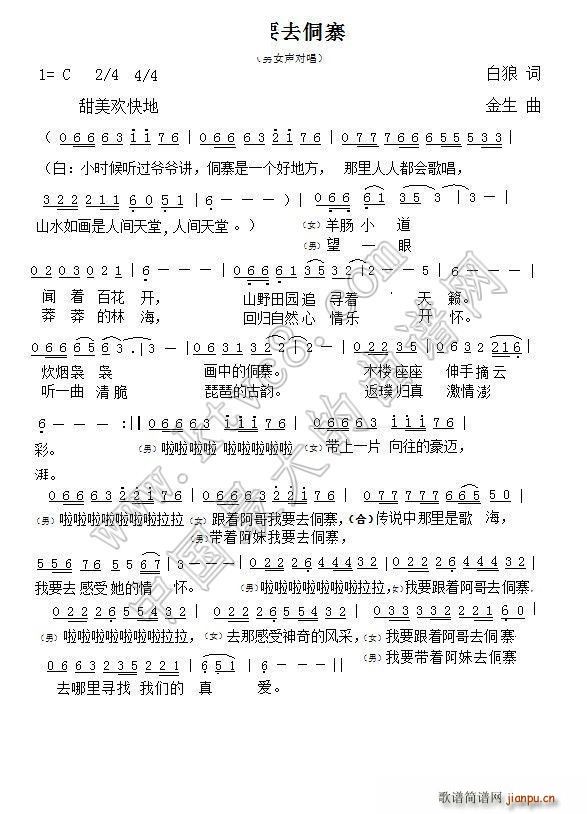 要去侗寨
（男女声对唱）
1= C 2/4 4/4 白狼 词
甜美欢快地 金生 曲
( 0 6 6 6 3 i i 7 6 | 0 6 6 6 3 2 2 i 7 6 | 0 7 7 7 7 7 6 6 6 5 5 5 3 3 |
（白：小时候听过爷爷讲，侗寨是一个好地方， 那里人人都会歌唱，
3 2 2 2 1 1 6 0 5 1 | 6 - - - ) | 0 6 6 6 1 3 5 3 | 3 - - |
山水如画是人间天堂，人间天堂。） （女）羊肠 小 道
（男）望 一 眼
0 2 0 3 0 2 1 | 6 - - - | 0 6 6 6 1 3 5 3 2 | 2 - - 5 | 6 - - - |
闻 着 百花 开， 山野田园追 寻着 天 籁。
莽 莽 的林 海， 回归自然心 情乐 开 怀。
0 6 6 6 5 6 3 . | 3 - | 0 6 3 1 3 2 2 | 0 2 2 2 1 3 3 | 6 3 2 2 1 6 |
炊烟袅 袅 画中的侗寨。 木楼座座 伸手摘云
听一曲 清脆 琵琶的古韵。 返璞归真 激情澎
6 - - - :|| 0 6 6 6 3 i i 7 6 | 0 6 6 6 3 i i 7 6 |
彩。 （男）啦啦啦啦 啦啦啦啦啦 （女）带上一片 向往的豪迈，
湃。
0 6 6 6 3 2 2 i 7 6 | 0 6 6 6 3 2 2 i 7 6 | 0 7 7 7 7 7 7 6 6 5 5 0 |
（男）啦啦啦啦啦啦啦拉拉 （女）跟着阿哥我要去侗寨，（合）传说中那里是歌 海，
（男）带着阿妹我要去侗寨，
5 5 5 6 7 6 5 5 6 7 | 6 - - - | 0 2 2 2 6 4 4 4 3 2 | 0 2 2 2 6 4 4 4 3 2 |
我要去 感受 她的情 怀。 （男）啦啦啦啦啦啦啦拉拉，（女）我要跟着阿哥去侗寨.
0 2 2 2 6 5 5 4 3 2 | 0 2 2 2 6 5 5 4 3 2 | 0 3 3 3 3 2 2 2 1 6 0 |
（男）啦啦啦啦啦啦啦拉拉，（女）去那感受神奇的风采，（女）我要跟着阿哥去侗 寨
（男）我要带着阿妹去侗寨
0 6 6 3 2 3 5 3 2 2 1 | 6 5 1 | 6 - - - ||
去哪里寻找 我们的 真 爱。
www.ktvc8.com
中国最大的曲谱网
歌谱简谱网
jianpu.cn